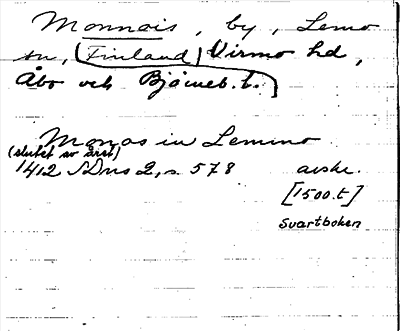 Monnais, by, Lemo
sn, (Finland) Virmo hd,
Åbo och Björneb. l.
Monos in Lemino
(slutet av året)
1412 SDns 2, s. 578 avskr.
[1500.t]
Svartboken